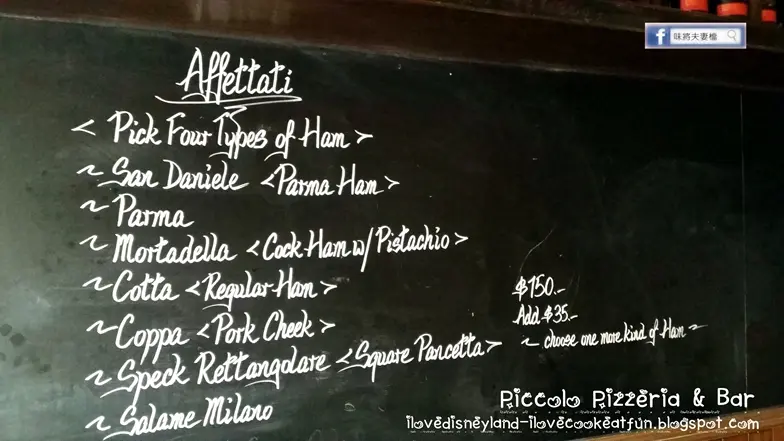 味將夫妻檔
Affettati
< Pick Four Types of Ham >
~ San Daniele <Parma Ham>
~ Parma
~ Mortadella <Cock Ham w/ Pistachio>
~ Cotta <Regular Ham>
~ Coppa <Pork Cheek>
~ Speck Rettangolare <Square Pancetta>
~ Salame Milano
$150.-
Add $35.-
~ choose one more kind of Ham ~
Piccolo Pizzeria & Bar
ilovedisneyland-ilovecookeatfun.blogspot.com